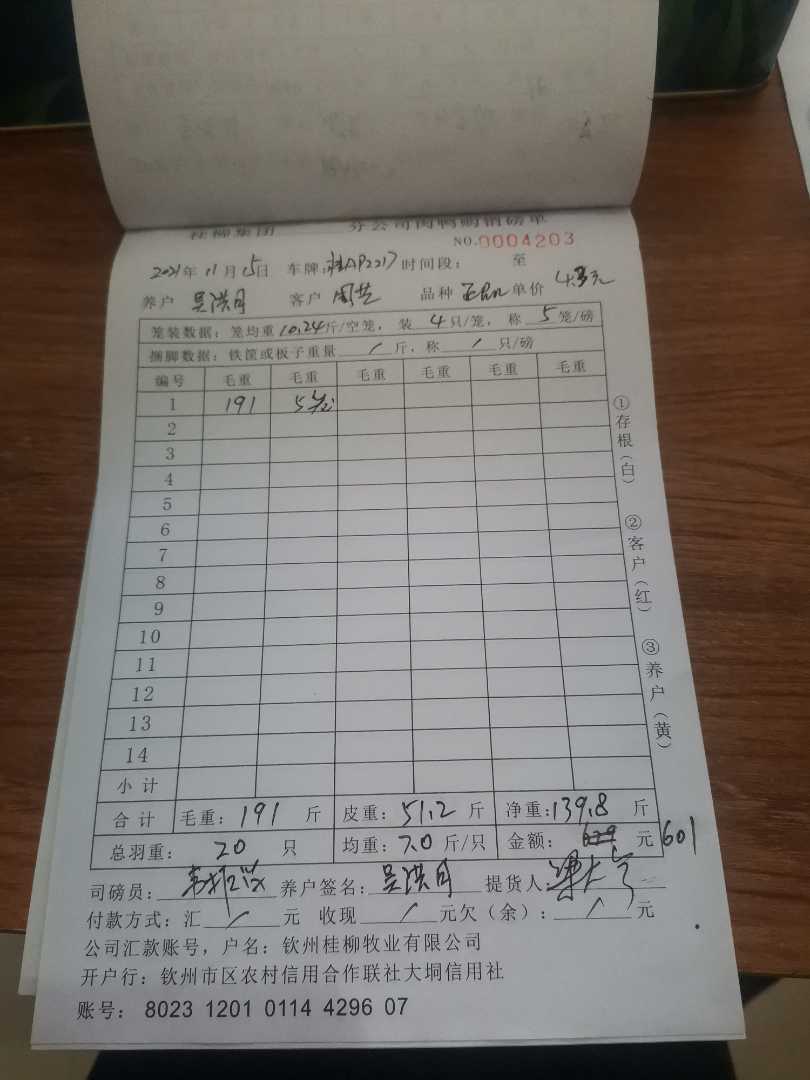 桂柳集团 分公司肉鸭销磅单
NO.0004203
2021年11月15日 车牌:桂AP2217 时间段: 至
养户 吴洪月 客户 品种 单价 4.3元
笼装数据:笼均重10.24斤/空笼,装4只/笼,称5笼/磅
捆脚数据:铁筐或板子重量/斤,称/只/磅
编号 毛重 毛重 毛重 毛重 毛重 毛重
1 191 5笼
2
3
4
5
6
7
8
9
10
11
12
13
14
小计
合计 毛重:191斤 皮重:51.2斤 净重:139.8斤
总羽重:20只 均重:7.0斤/只 金额:629元601
司磅员: 养户签名:吴洪月 提货人:
付款方式:汇/元 收现/元欠(余):/元
公司汇款账号,户名:钦州桂柳牧业有限公司
开户行:钦州市区农村信用合作联社大垌信用社
账号: 8023 1201 0114 4296 07
①存根(白)
②客户(红)
③养户(黄)